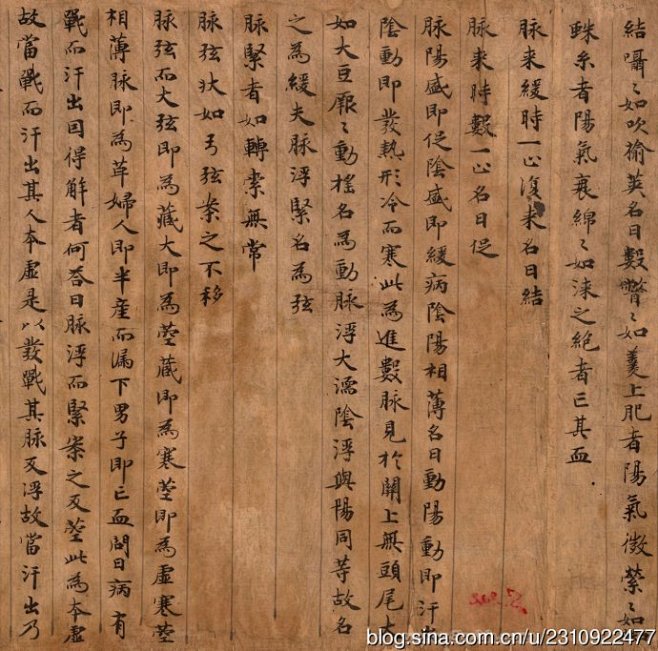 結囁〻如吹揄莢名曰數瞥〻如羹上肥者陽氣微縈〻如
蛛糸者陽氣衰綿〻如洓之絕者亡其血
脉来緩時一止復来名曰結
脉来時數一止名曰促
脉陽盛即促陰盛即緩病陰陽相薄名曰動陽動即汗出
陰動即發熱形冷而寒此為進數脉見於關上無頭尾大
如大豆厥〻動搖名為動脉浮大濡陰浮與陽同等故名
之為緩夫脉浮緊名為弦
脉緊者如轉索無常
脉弦狀如弓弦案之不移
脉弦而大弦即為藏大即為芤藏即為寒芤即為虛寒芤
相薄脉即為革婦人即半産而漏下男子即亡血問曰病有
戰而汗出因得解者何荅曰脉浮而緊案之反芤此為本虛
故當戰而汗出其人本虛是以發戰其脉反浮故當汗出乃
blog.sina.com.cn/u/2310922477